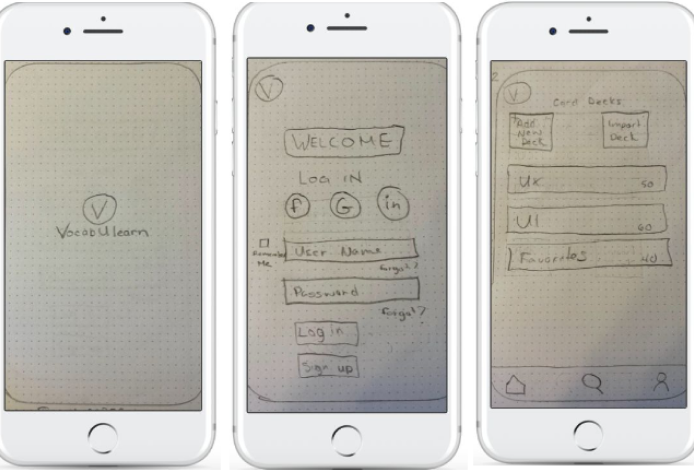 V
VocabUlearn
V
WELCOME
Log IN
f G in
Remember
Me
User Name
forgot?
Password
forgot?
Log in
Sign up
2
V
Card Decks
+Add
New
Deck
Import
Deck
UX 50
UI 60
Favorites 40